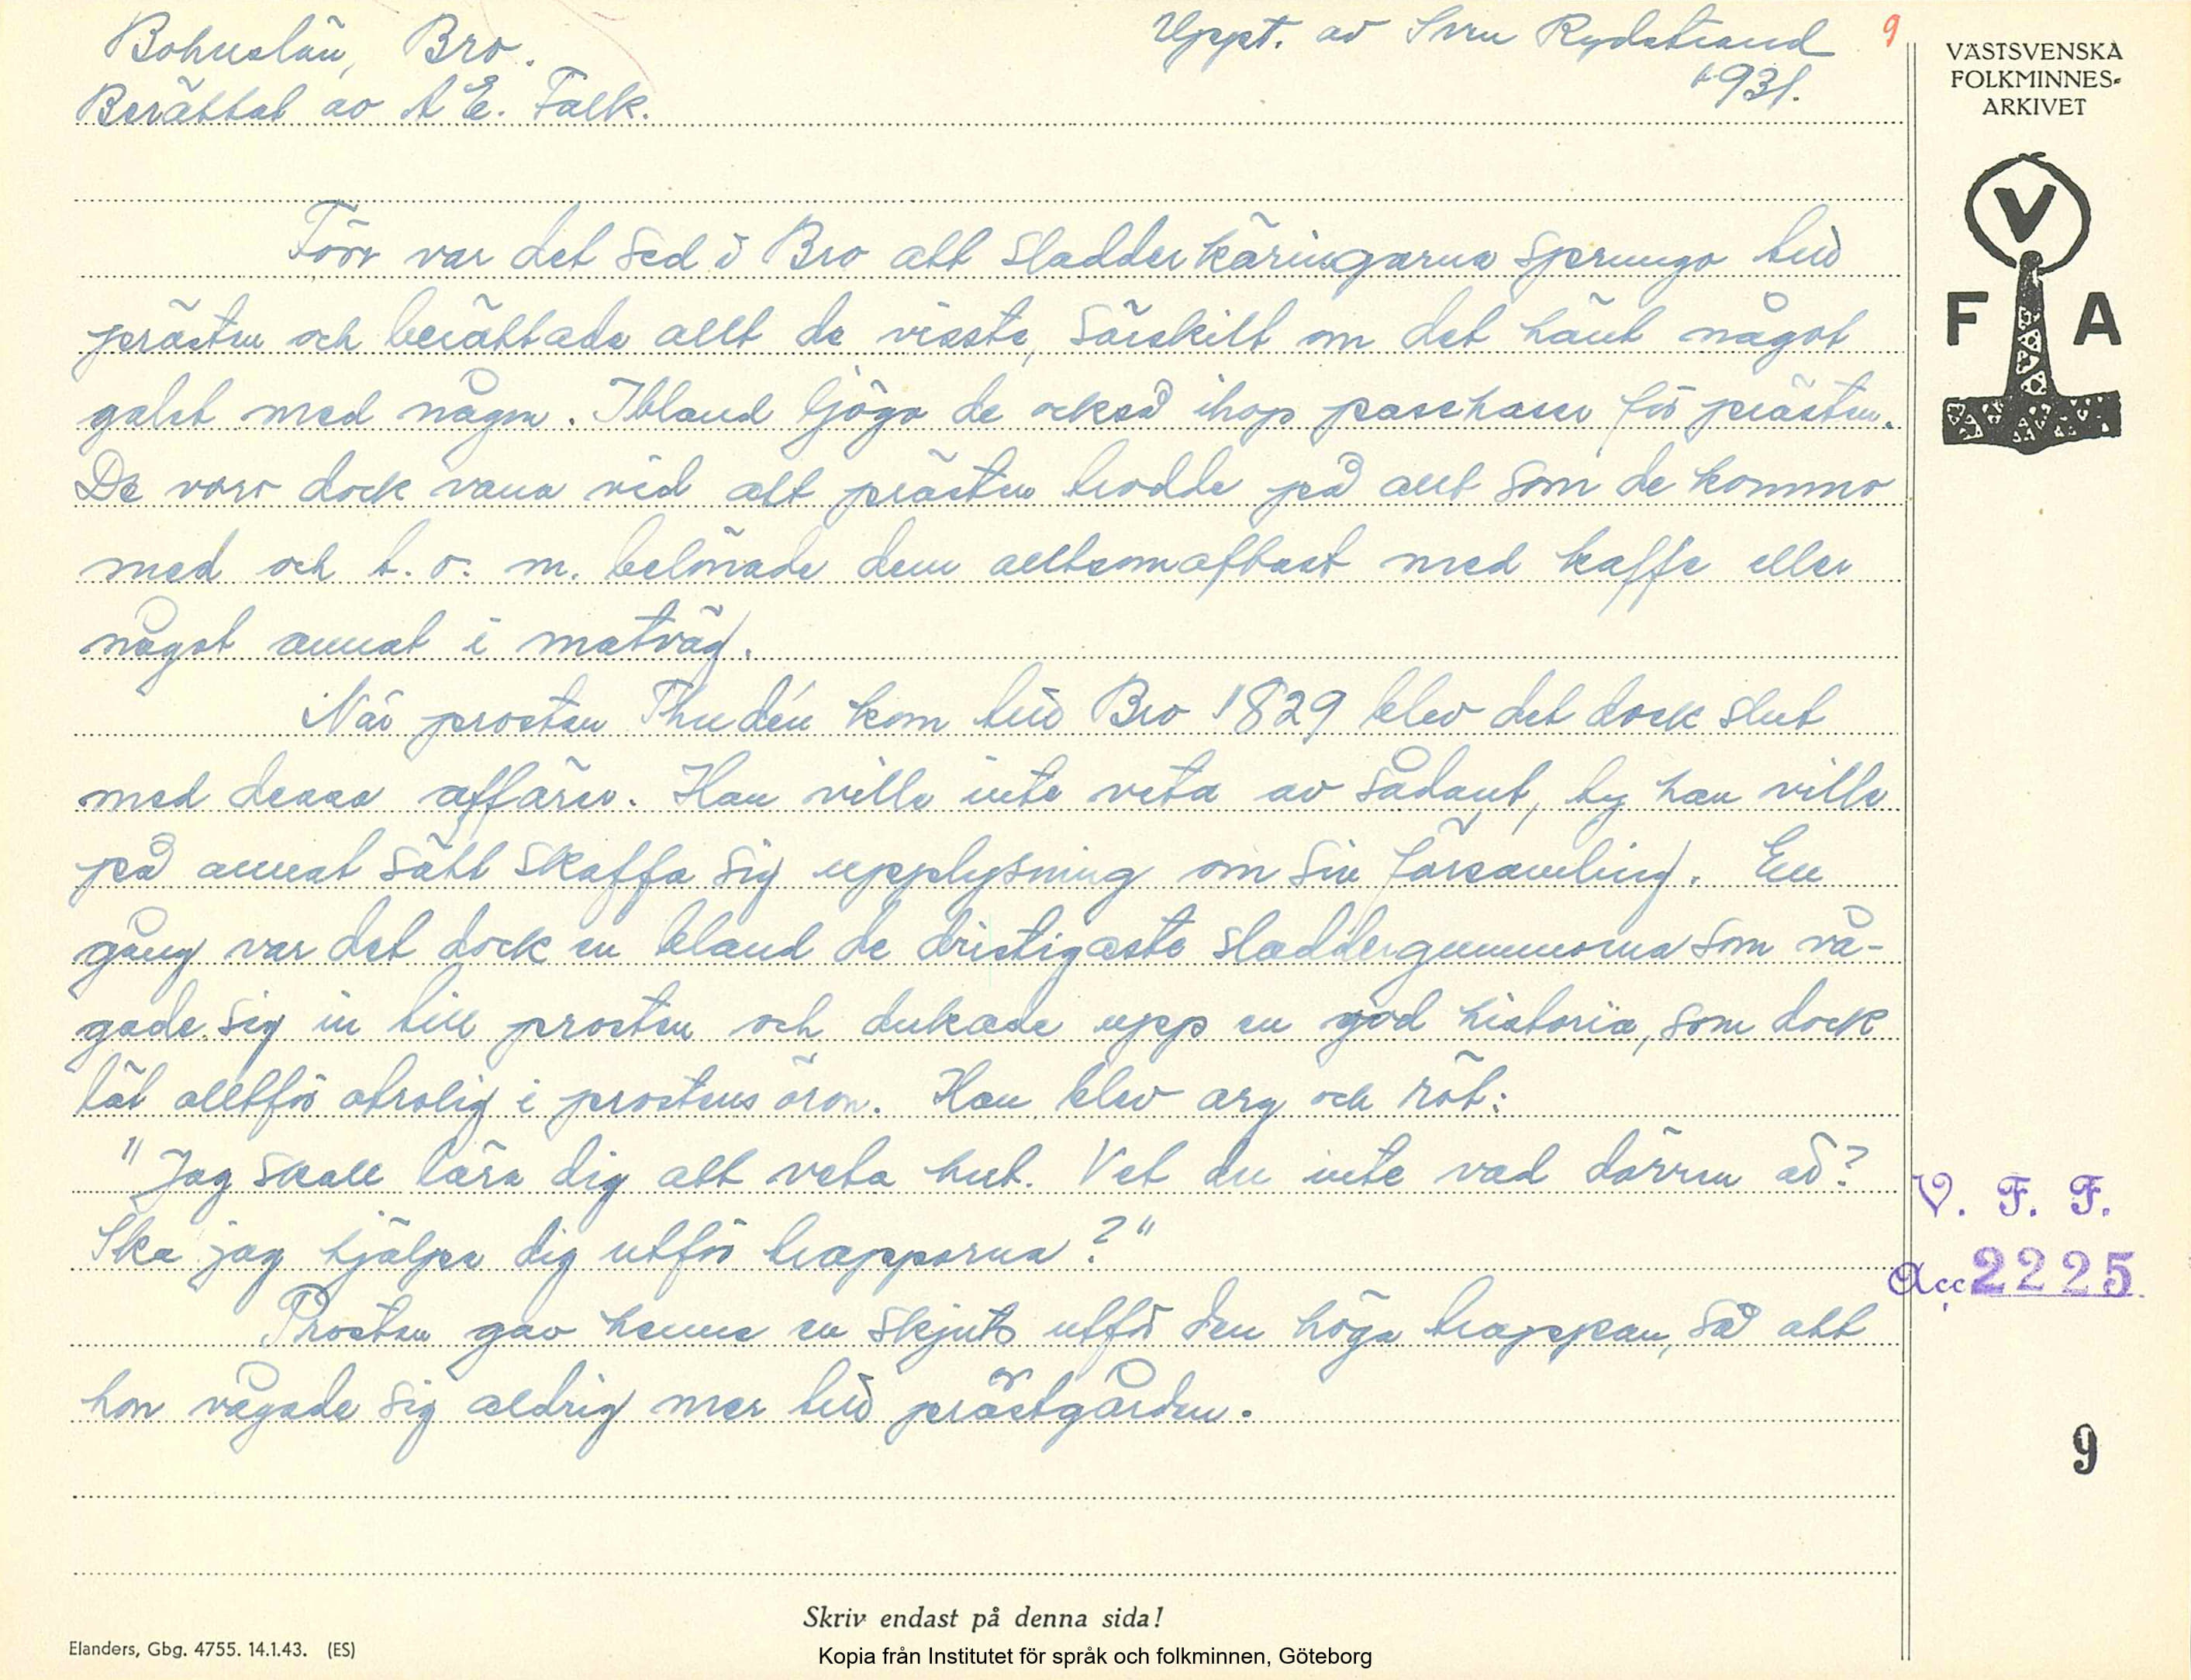 Bohuslän, Bro.
Uppt. av Sven Rydstrand 9
1931.
Berättat av A E. Falk.
VÄSTSVENSKA
FOLKMINNES-
ARKIVET
V
F A
Förr var det sed i Bro att sladderkäringarna sprungo till
prästen och berättade allt de visste, särskilt om det hänt något
galet med någon. Ibland ljögo de också ihop paschaser för prästen.
De voro dock vana vid att prästen trodde på allt som de kommo
med och t. o. m. belönade dem alltsomaftast med kaffe eller
något annat i matväg.
När prosten Thudén kom till Bro 1829 blev det dock slut
med dessa affärer. Han ville inte veta av sådant, ty han ville
på annat sätt skaffa sig upplysning om sin församling. En
gång var det dock en bland de dristigaste sladdergummorna som vå-
gade sig in till prosten och dukade upp en god historia, som dock
lät alltför otrolig i prostens öron. Han blev arg och röt:
"Jag skall lära dig att veta hut. Vet du inte vad dörren är?
Ska jag hjälpa dig utför trapporna?"
V. F. F.
Acc. 2225
Prosten gav henne en skjuts utför den höga trappan, så att
hon vågade sig aldrig mer till prästgården.
9
Skriv endast på denna sida!
Elanders, Gbg. 4755. 14.1.43. (ES)
Kopia från Institutet för språk och folkminnen, Göteborg